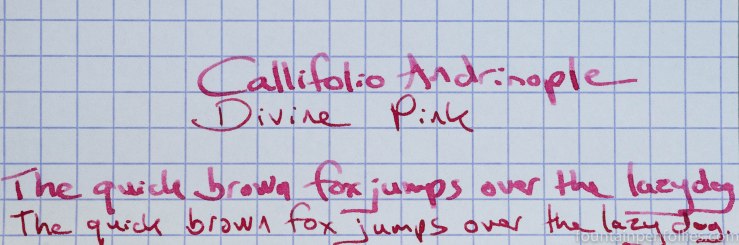 Callifolio Andrinople
Divine Pink
The quick brown fox jumps over the lazy dog
The quick brown fox jumps over the lazy dog.
fountainpenfollies.com